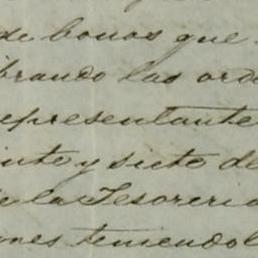 de bonos que
brando las orde
epresentante
inte y siete de
e la Tesoreria
ones teniendol